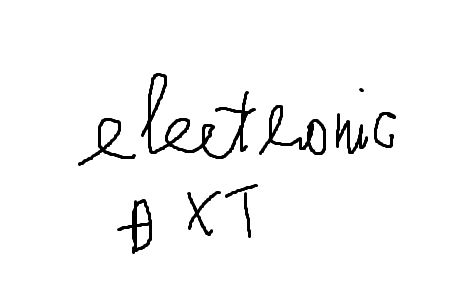 electronic
Đ XT